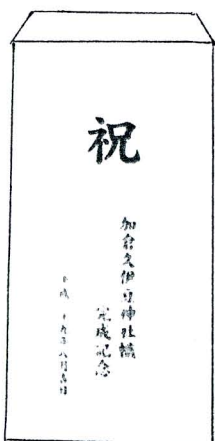 祝
加倉久伊豆神社幟
完成記念
平成 十九年八月吉日